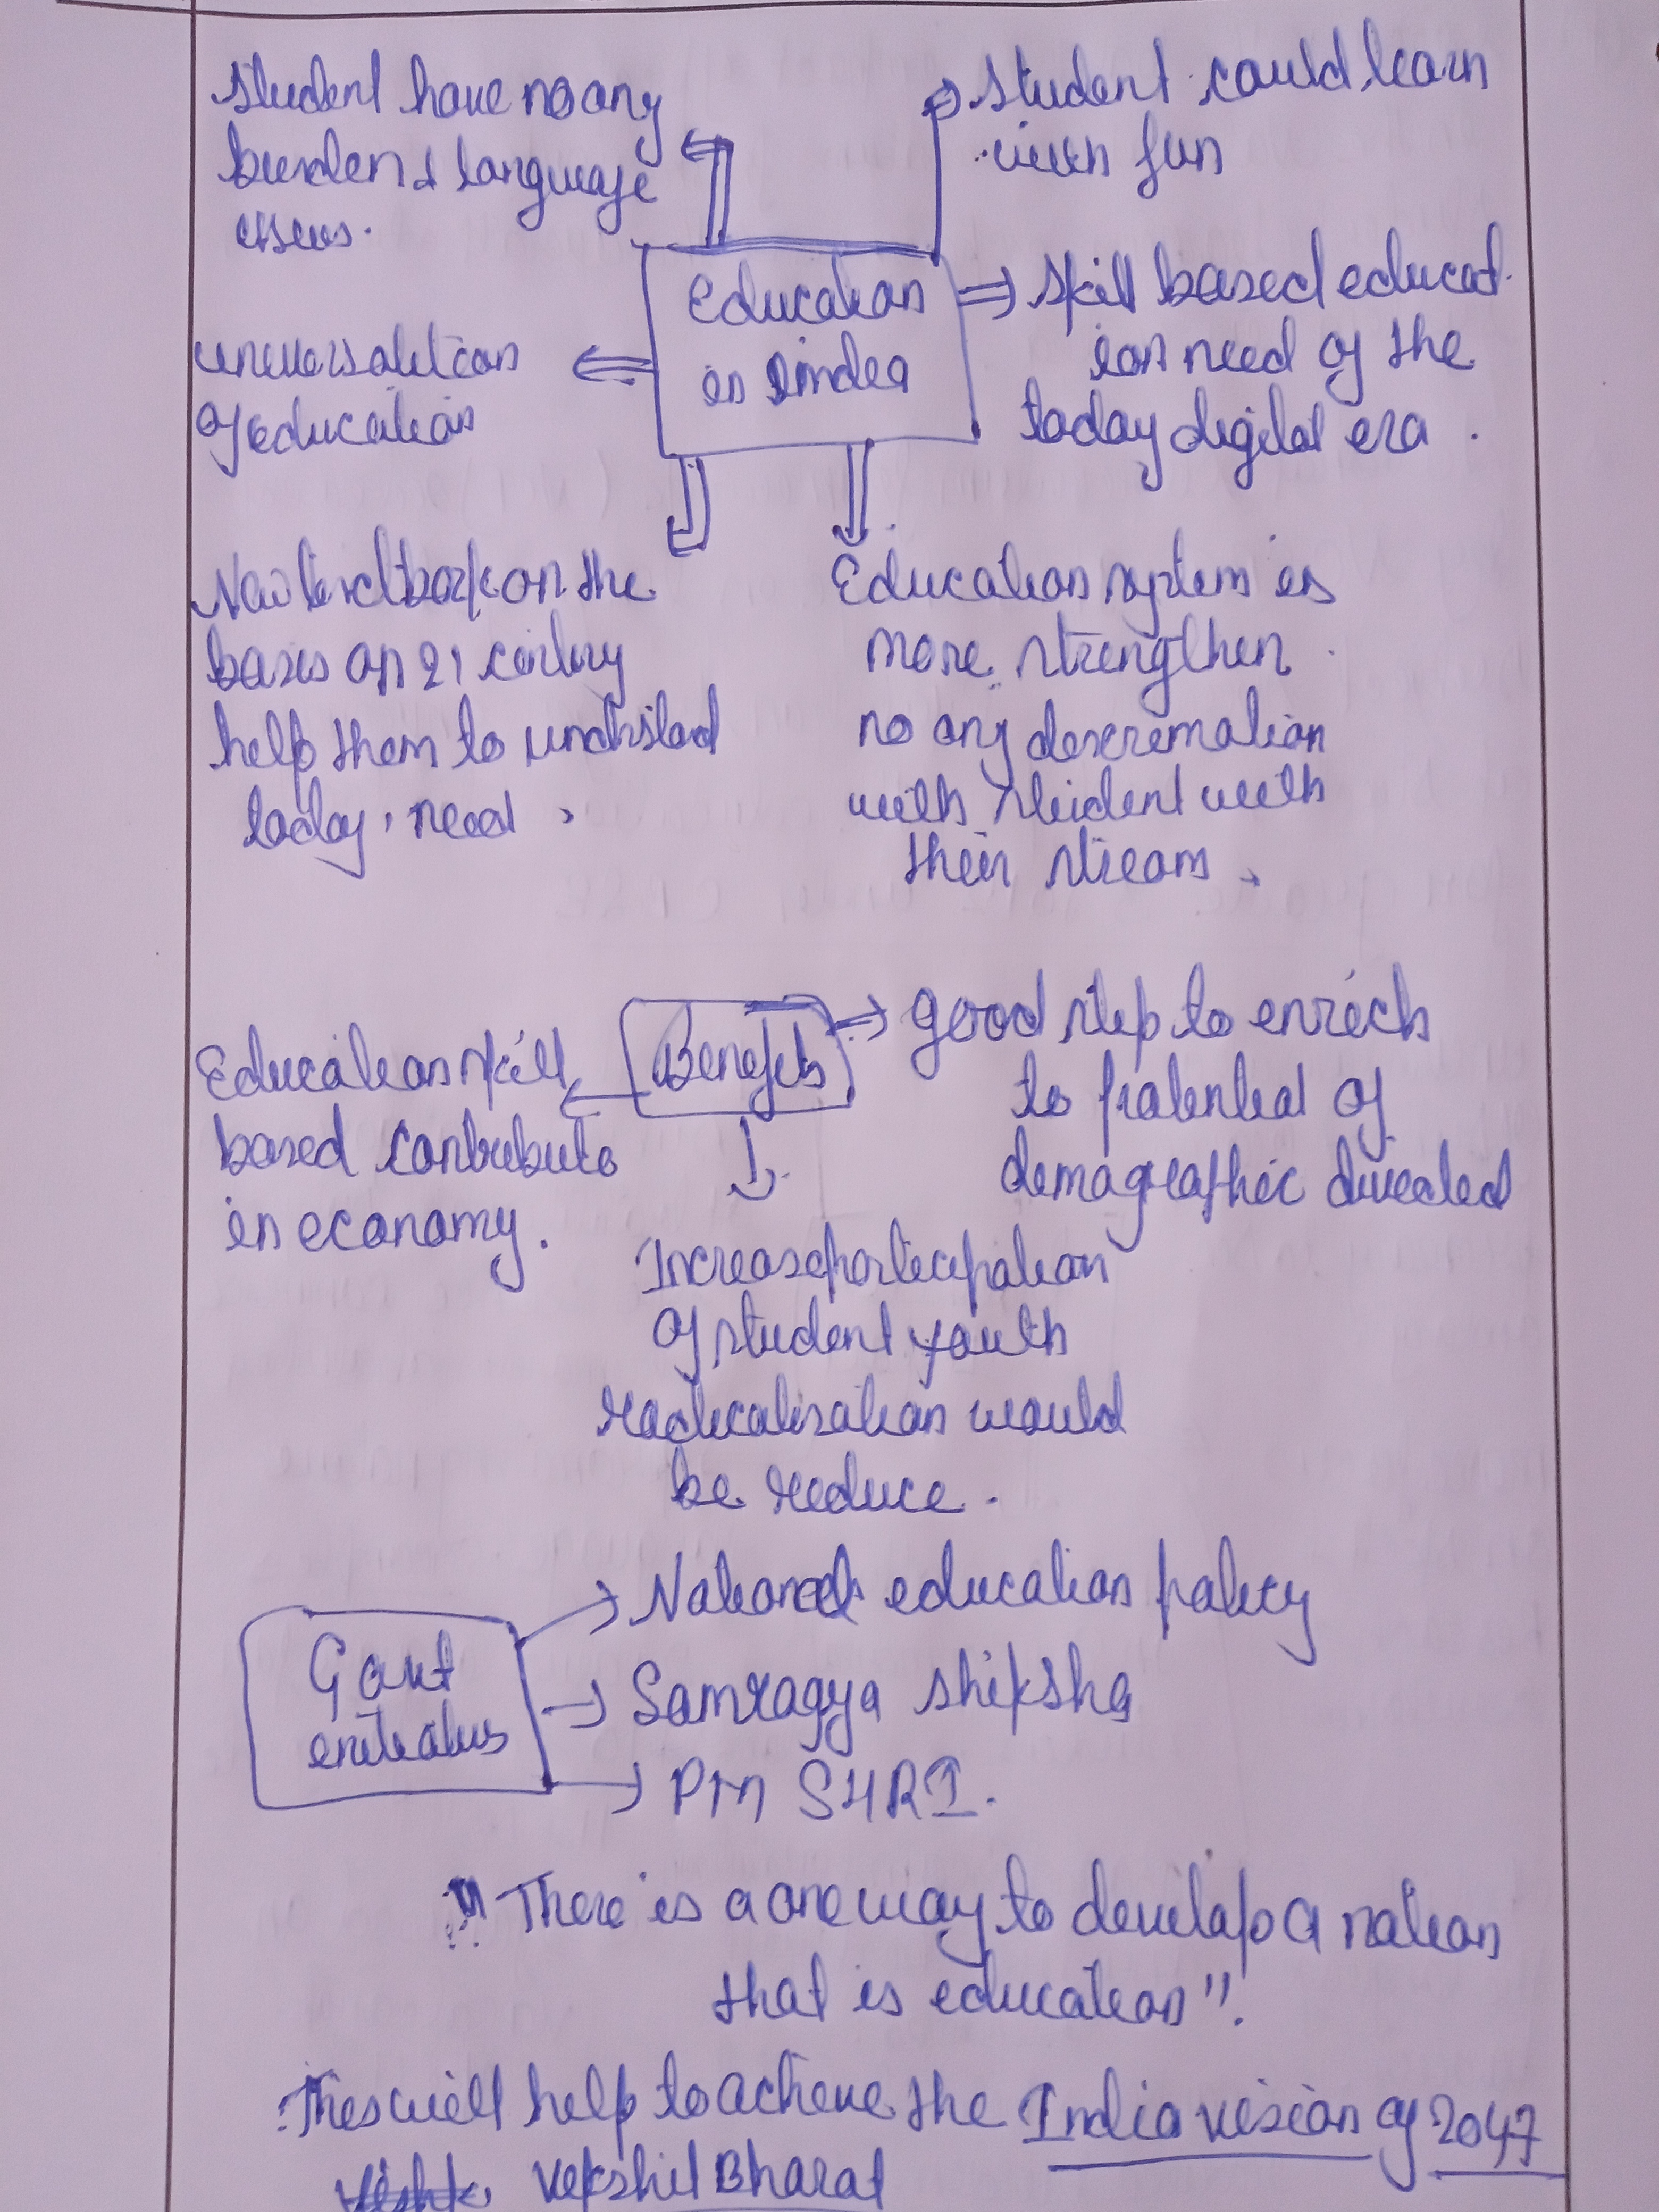 Student have no any
burden & language
issues.
Student could learn
with fun
Education
in India
Skill based educat
ion need of the
today digital era.
universalition
of education
New textbook on the
basis on 21 century
help them to understad
today, need,
Education system is
more strengthen
no any descremation
with student with
their stream.
Benefits
good step to enrich
to potential of
demographic diveded
Education skill
based contribute
in economy.
Increase participation
of student youth
radicalisation would
be reduce.
Govt
initiatus
National education policy
Samragya shiksha
PM SHRI.
"There is a one way to develop a nation
that is education".
This will help to achieve the India vision of 2047
Vikshit Bharat